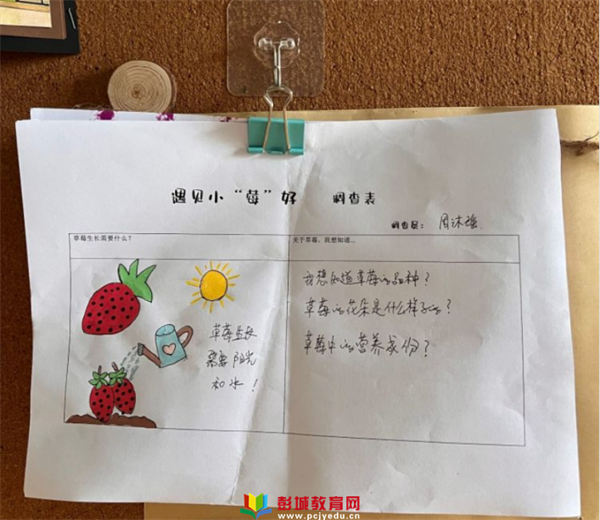 遇见小“莓”好 调查表
调查员：周沐瑶
草莓生长需要什么？
关于草莓，我想知道...
草莓生长
需要阳光
和水！
我想知道草莓的品种？
草莓的花朵是什么样子的？
草莓中的营养成份？
彭城教育网
www.pcjyedu.cn